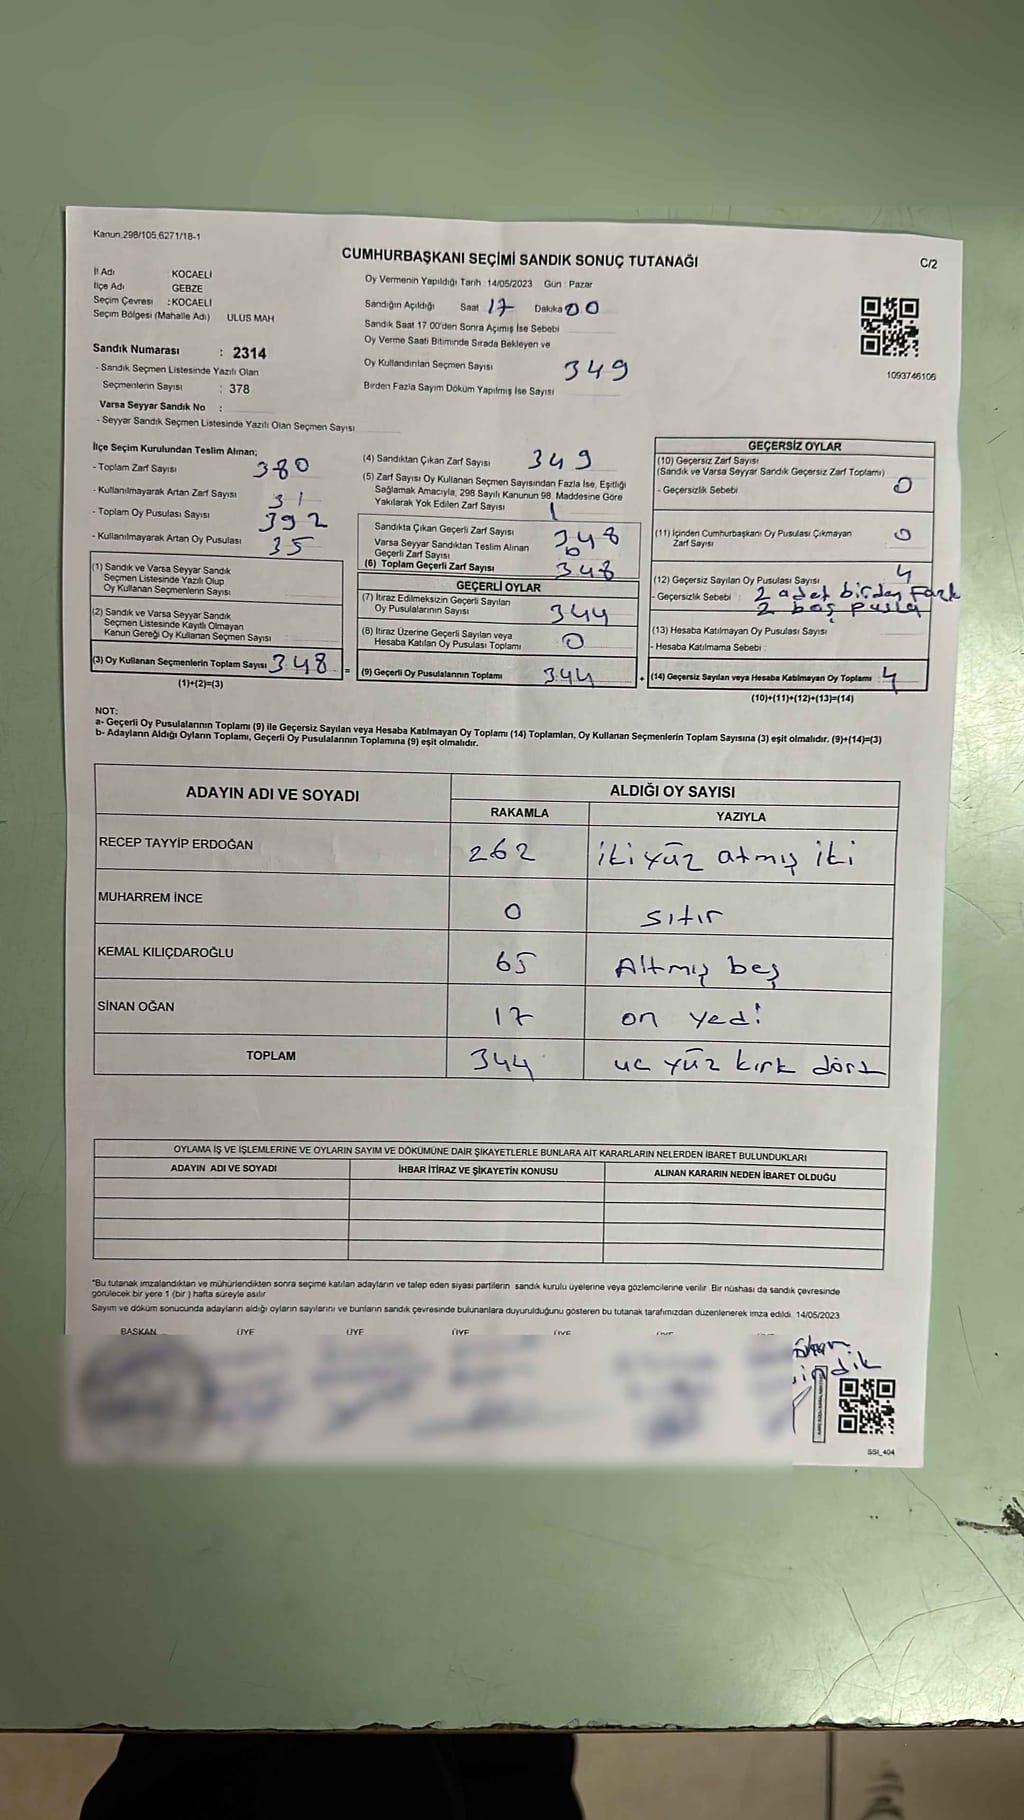 Kanun 298/105,6271/18-1
CUMHURBAŞKANI SEÇİMİ SANDIK SONUÇ TUTANAĞI
C/2
İl Adı : KOCAELİ
İlçe Adı GEBZE
Seçim Çevresi : KOCAELİ
Seçim Bölgesi (Mahalle Adı) ULUS MAH
Oy Vermenin Yapıldığı Tarih : 14/05/2023 Gün : Pazar
Sandığın Açıldığı Saat 17 Dakika 00
Sandık Saat 17:00'den Sonra Açımış İse Sebebi
Oy Verme Saati Bitiminde Sırada Bekleyen ve
Oy Kullandırılan Seçmen Sayısı 349
Birden Fazla Sayım Döküm Yapılmış İse Sayısı
1093746106
Sandık Numarası : 2314
- Sandık Seçmen Listesinde Yazılı Olan
Seçmenlerin Sayısı : 378
Varsa Seyyar Sandık No :
- Seyyar Sandık Seçmen Listesinde Yazılı Olan Seçmen Sayısı
İlçe Seçim Kurulundan Teslim Alınan;
- Toplam Zarf Sayısı 380
- Kullanılmayarak Artan Zarf Sayısı 31
- Toplam Oy Pusulası Sayısı 392
- Kullanılmayarak Artan Oy Pusulası 35
(1) Sandık ve Varsa Seyyar Sandık
Seçmen Listesinde Yazılı Olup
Oy Kullanan Seçmenlerin Sayısı
(2) Sandık ve Varsa Seyyar Sandık
Seçmen Listesinde Kayıtlı Olmayan
Kanun Gereği Oy Kullanan Seçmen Sayısı
(3) Oy Kullanan Seçmenlerin Toplam Sayısı 348 =
(1)+(2)=(3)
(4) Sandıktan Çıkan Zarf Sayısı 349
(5) Zarf Sayısı Oy Kullanan Seçmen Sayısından Fazla İse, Eşitliği
Sağlamak Amacıyla, 298 Sayılı Kanunun 98. Maddesine Göre
Yakılarak Yok Edilen Zarf Sayısı 1
Sandıkta Çıkan Geçerli Zarf Sayısı 348
Varsa Seyyar Sandıktan Teslim Alınan
Geçerli Zarf Sayısı
(6) Toplam Geçerli Zarf Sayısı 348
GEÇERLİ OYLAR
(7) İtiraz Edilmeksizin Geçerli Sayılan
Oy Pusulalarının Sayısı 344
(8) İtiraz Üzerine Geçerli Sayılan veya
Hesaba Katılan Oy Pusulası Toplamı 0
(9) Geçerli Oy Pusulalarının Toplamı 344 +
GEÇERSİZ OYLAR
(10) Geçersiz Zarf Sayısı
(Sandık ve Varsa Seyyar Sandık Geçersiz Zarf Toplamı)
- Geçersizlik Sebebi 0
(11) İçinden Cumhurbaşkanı Oy Pusulası Çıkmayan
Zarf Sayısı 0
(12) Geçersiz Sayılan Oy Pusulası Sayısı 4
- Geçersizlik Sebebi : 2 adet birden Fazla
2 boş pusla
(13) Hesaba Katılmayan Oy Pusulası Sayısı
- Hesaba Katılmama Sebebi :
(14) Geçersiz Sayılan veya Hesaba Katılmayan Oy Toplamı 4
(10)+(11)+(12)+(13)=(14)
NOT:
a- Geçerli Oy Pusulalarının Toplamı (9) ile Geçersiz Sayılan veya Hesaba Katılmayan Oy Toplamı (14) Toplamları, Oy Kullanan Seçmenlerin Toplam Sayısına (3) eşit olmalıdır. (9)+(14)=(3)
b- Adayların Aldığı Oyların Toplamı, Geçerli Oy Pusulalarının Toplamına (9) eşit olmalıdır.
ADAYIN ADI VE SOYADI
ALDIĞI OY SAYISI
RAKAMLA YAZIYLA
RECEP TAYYİP ERDOĞAN 262 iki yüz atmış iki
MUHARREM İNCE 0 sıfır
KEMAL KILIÇDAROĞLU 65 Altmış beş
SİNAN OĞAN 17 on yedi
TOPLAM 344 uc yüz kırk dört
OYLAMA İŞ VE İŞLEMLERİNE VE OYLARIN SAYIM VE DÖKÜMÜNE DAİR ŞİKAYETLERLE BUNLARA AİT KARARLARIN NELERDEN İBARET BULUNDUKLARI
ADAYIN ADI VE SOYADI İHBAR İTİRAZ VE ŞİKAYETİN KONUSU ALINAN KARARIN NEDEN İBARET OLDUĞU
"Bu tutanak imzalandıktan ve mühürlendikten sonra seçime katılan adayların ve talep eden siyasi partilerin sandık kurulu üyelerine veya gözlemcilerine verilir. Bir nüshası da sandık çevresinde
görülecek bir yere 1 (bir ) hafta süreyle asılır
Sayım ve döküm sonucunda adayların aldığı oyların sayılarını ve bunların sandık çevresinde bulunanlara duyurulduğunu gösteren bu tutanak tarafımızdan düzenlenerek imza edildi. 14/05/2023
BAŞKAN ÜYE ÜYE ÜYE ÜYE
SSI_404